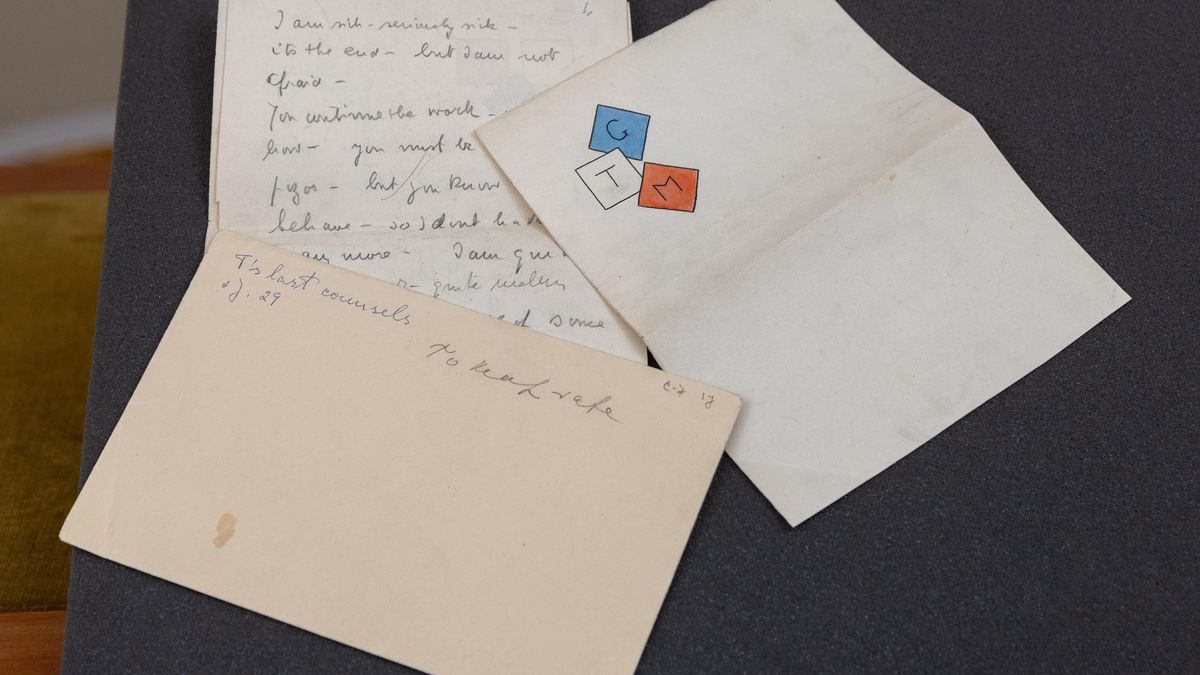 I am sick - seriously sick -
it's the end - but I am not
afraid -
You continue the work -
how - you must be
but you know
behave - so I dont
any more - I am
quite
of some
G
T
M
T's last counsels
29
To keep safe